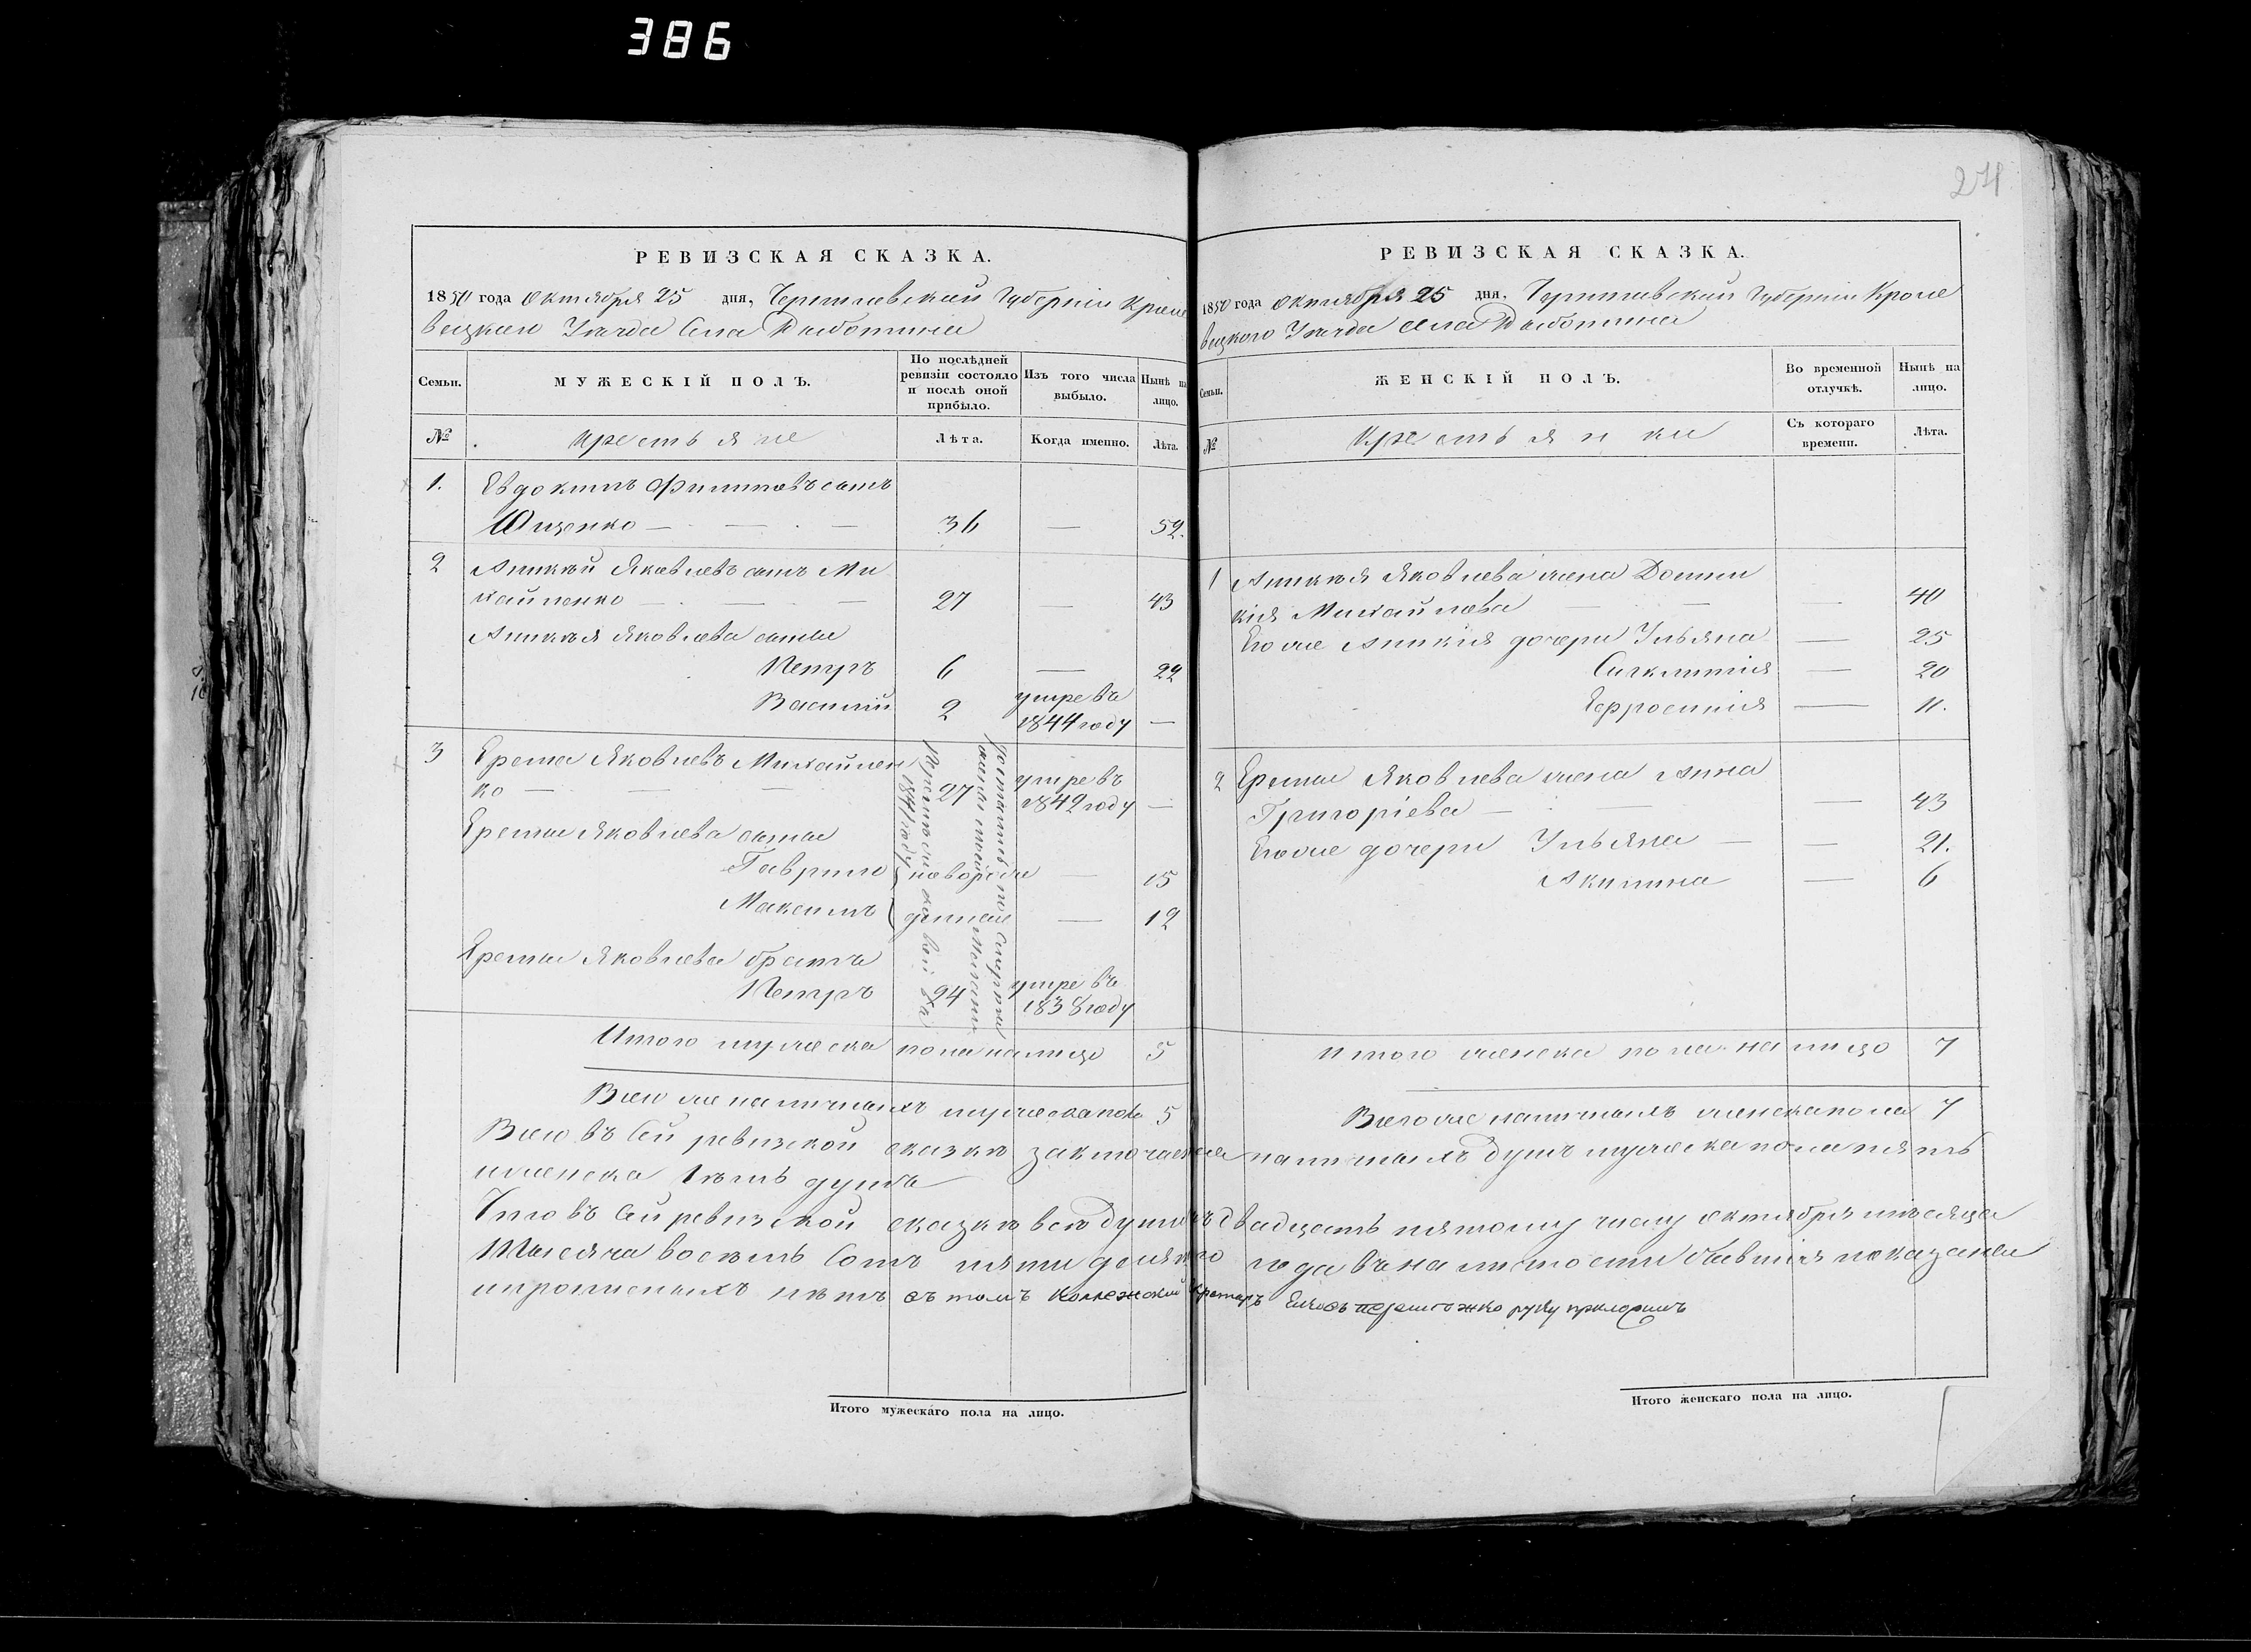 386
271
РЕВИЗСКАЯ СКАЗКА.
1850 года Октября 25 дня, Черниговской Губерніи Кроле
вецкаго Уезда Села Дубовичъ
Семьи. МУЖЕСКІЙ ПОЛЪ. По послѣдней ревизіи состояло и послѣ оной прибыло. Изъ того числа выбыло. Нынѣ на лицо.
№ Крестьяне Лѣта. Когда именно. Лѣта.
1. Евдокимъ Филиповъ сынъ
Ющенко — — — 36 — 52.
2 Аникѣй Яковлевъ сынъ Ми
хайленко — — — 27 — 43
Аникѣя Яковлева сыны
Петръ 6 — 22
Василій 2 умре въ
1844 году —
3 Ерема Яковлевъ Михайлен
ко — — — 27 умре въ
1842 году —
Еремы Яковлева сыны
Гаврило новорож — 15
Максимъ денные — 12
Еремы Яковлева братъ
Петръ 24 умре въ
1838 году
1841 году
Итого мужеска пола налицо 5
Всего же наличныхъ мужеска пола 5
РЕВИЗСКАЯ СКАЗКА.
1850 года Октября 25 дня, Черниговской Губерніи Кроле
вецкого Уезда села
Семьи. ЖЕНСКІЙ ПОЛЪ. Во временной отлучкѣ. Нынѣ на лицо.
№ Крестьянки Съ котораго времени. Лѣта.
1 Аникѣя Яковлева жена Домни
кія Михайлова — — 40
Его же Аникія дочери Ульяна — 25
Сигклитія — 20
Ефросинія — 11.
2 Еремы Яковлева жена Анна
Григоріева — — — 43
Его же дочери Ульяна — — 21.
Акилина — 6
Итого женска пола налицо 7
Всего же наличныхъ женска пола 7
Всего въ сей ревизской сказкѣ заключается наличныхъ душъ мужеска пола пять
и женска семь душъ
Что въ сей ревизской сказкѣ все души къ двадцать пятому числу октября мѣсяца
Тысяча восемь сотъ пяти десятого года въ наличности бывшія показаны
и прописныхъ нѣтъ въ томъ Колежский руку приложилъ
Итого мужескаго пола на лицо.
Итого женскаго пола на лицо.